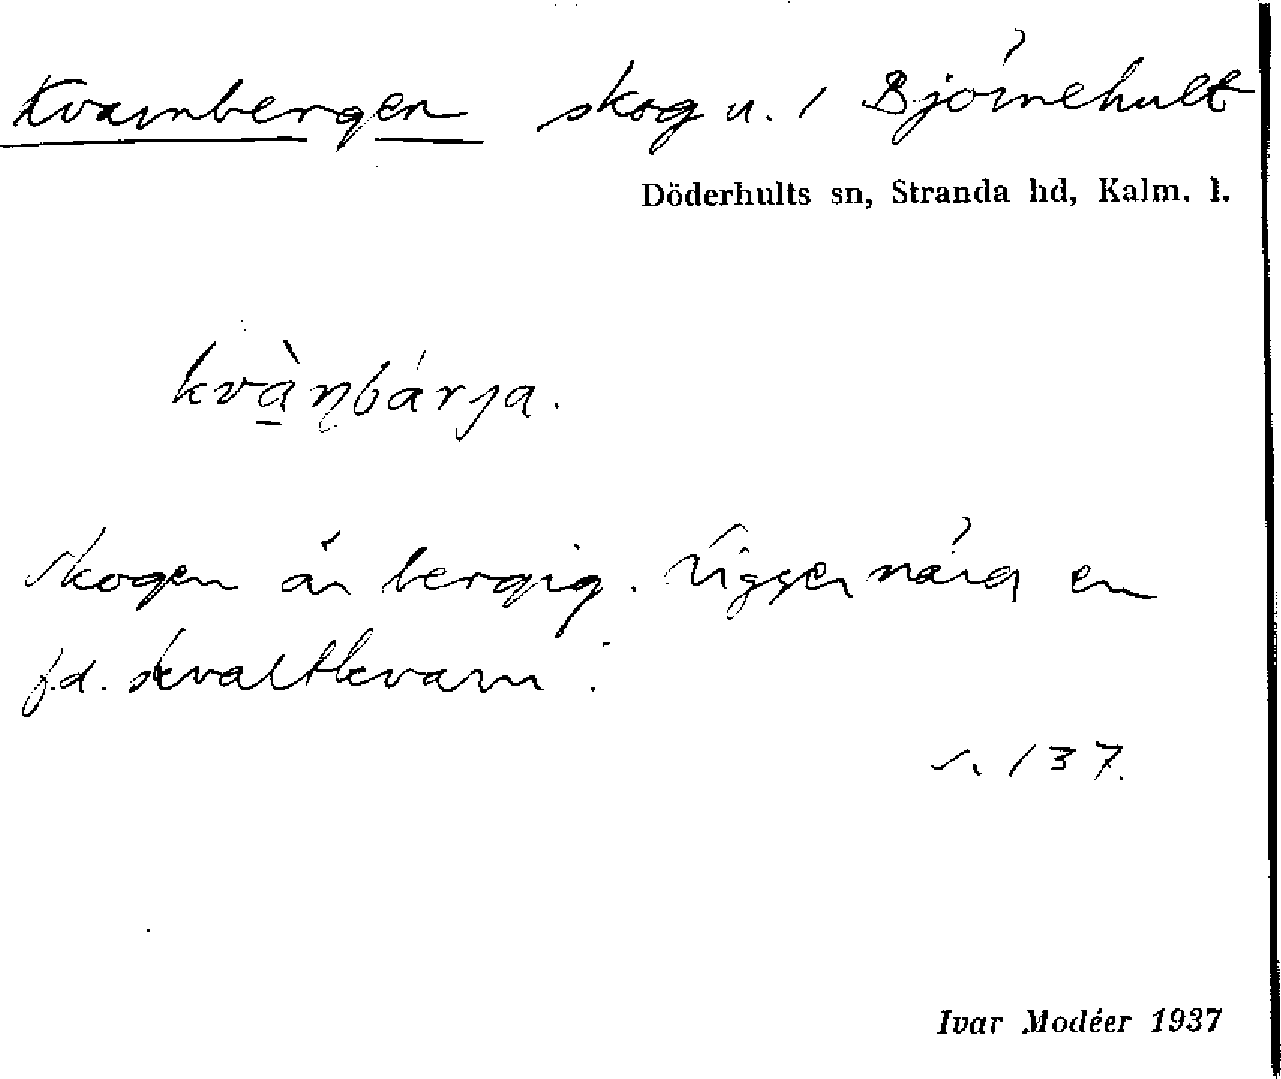 Kvarnbergen skog u. 1 Björnehult
Döderhults sn, Stranda hd, Kalm. l.
kvà̠ɳbárja.
Skogen är bergig. Ligger nära en
f.d. skvaltkvarn.
s. 137.
Ivar Modéer 1937